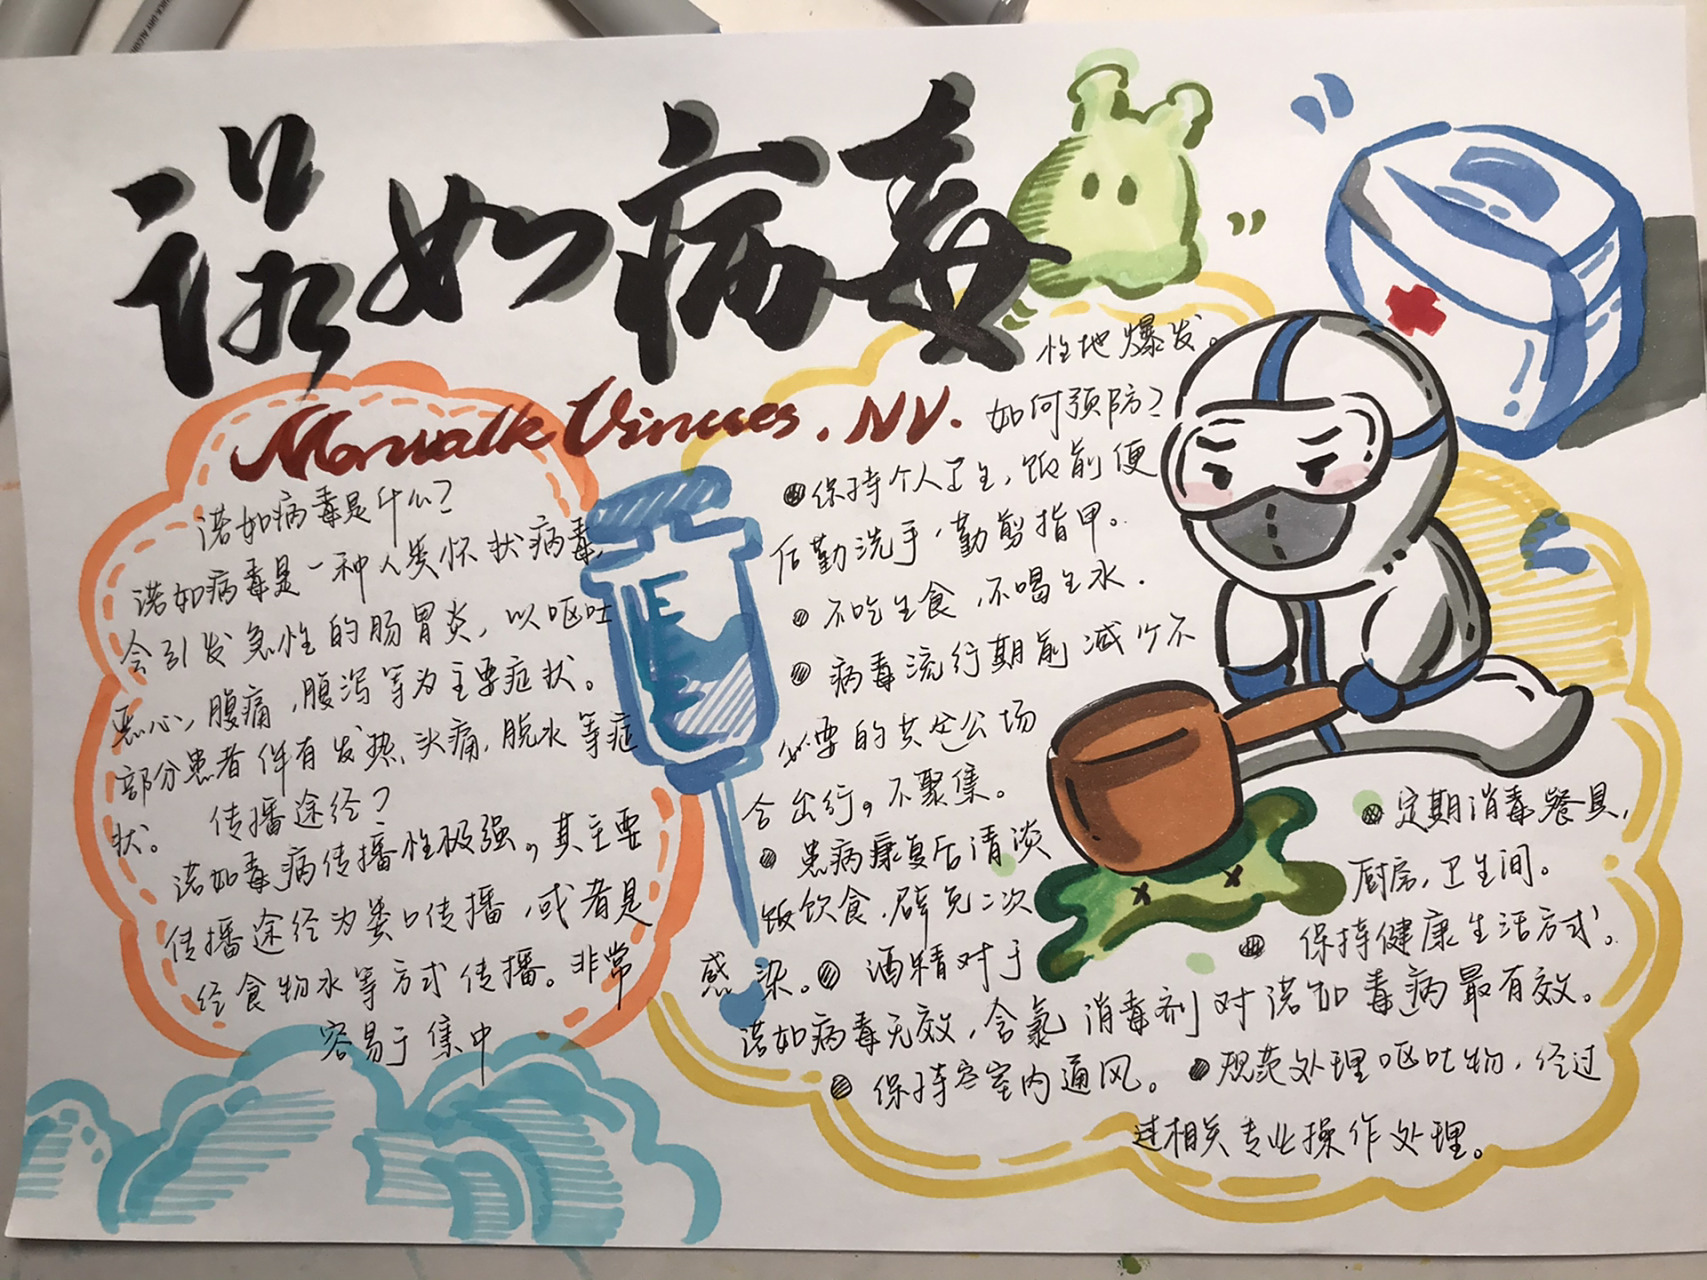 诺如病毒
Norwalk Viruses. NV.
诺如病毒是什么?
诺如病毒是一种人类怀状病毒,
会引发急性的肠胃炎,以呕吐
恶心,腹痛,腹泻等为主要症状。
部分患者伴有发热、头痛,脱水等症
状。
传播途经?
诺如毒病传播性极强。其主要
传播途经为粪口传播,或者是
经食物水等方式传播。非常
容易于集中
性地爆发。
如何预防?
保持个人卫生,饭前便
后勤洗手,勤剪指甲。
不吃生食,不喝生水.
病毒流行期前减少不
必要的共公场
合出行。不聚集。
患病康复后清淡
饭饮食.辟免二次
感染。酒精对于
诺如病毒无效,含氯消毒剂对诺如毒病最有效。
保持室内通风。
规范处理呕吐物,经过
过相关专业操作处理。
定期消毒餐具,
厨房,卫生间。
保持健康生活方式。